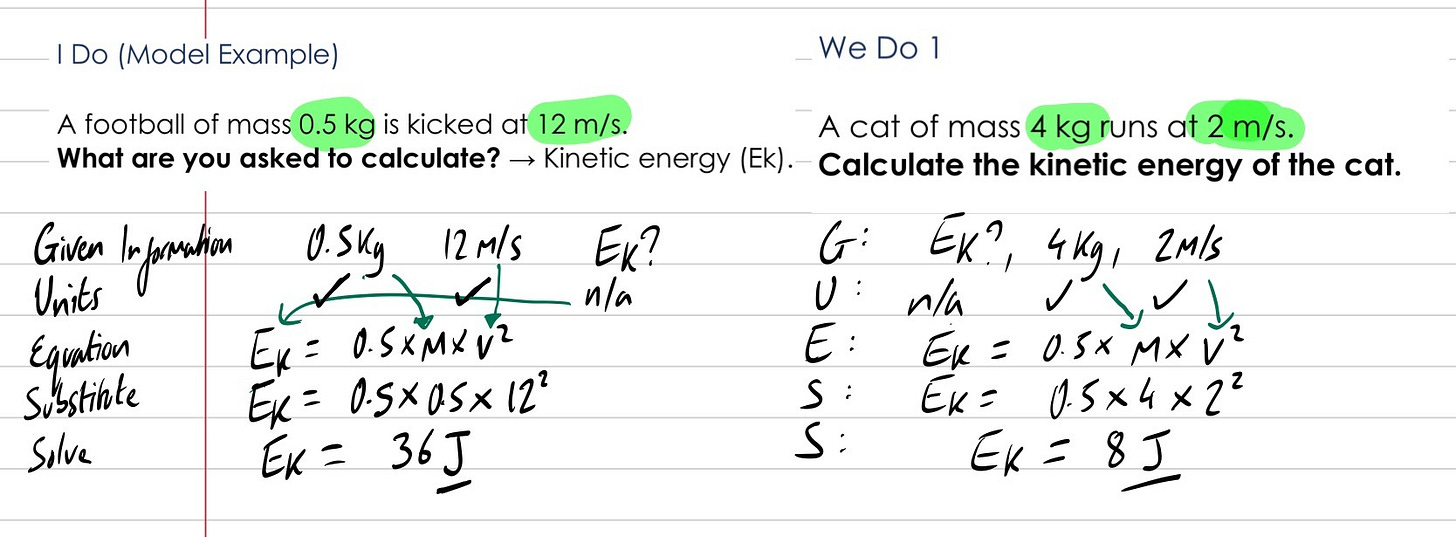 I Do (Model Example)
A football of mass 0.5 kg is kicked at 12 m/s.
What are you asked to calculate? → Kinetic energy (Ek).
Given Information 0.5Kg 12 m/s EK?
Units ✓ ✓ n/a
Equation EK = 0.5 × M × V²
Substitute EK = 0.5 × 0.5 × 12²
Solve EK = 36 J
We Do 1
A cat of mass 4 kg runs at 2 m/s.
Calculate the kinetic energy of the cat.
G: EK?, 4Kg, 2m/s
U: n/a ✓ ✓
E: EK = 0.5 × M × V²
S: EK = 0.5 × 4 × 2²
S: EK = 8 J